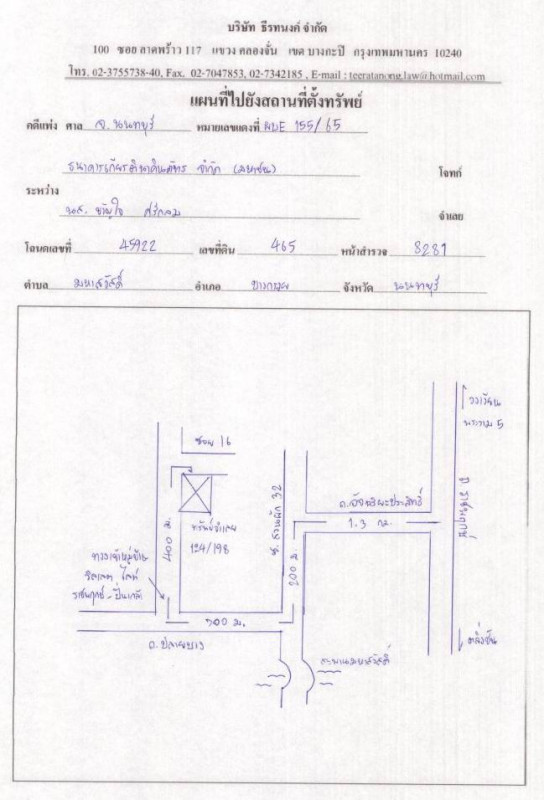 บริษัท ธีรทนงค์ จำกัด
100 ซอย ลาดพร้าว 117 แขวง คลองจั่น เขต บางกะปิ กรุงเทพมหานคร 10240
โทร. 02-3755738-40, Fax. 02-7047853, 02-7342185 , E-mail : teeratanong.law@hotmail.com
แผนที่ไปยังสถานที่ตั้งทรัพย์
คดีแพ่ง ศาล จ. นนทบุรี หมายเลขแดงที่ ผบE 155/65
ธนาคารเกียรตินาคินภัทร จำกัด (มหาชน) โจทก์
ระหว่าง
นส. ขวัญใจ จำเลย
โฉนดเลขที่ 45922 เลขที่ดิน 465 หน้าสำรวจ 8281
ตำบล มหาสวัสดิ์ อำเภอ บางกรวย จังหวัด นนทบุรี
วงเวียน
พระราม 5
ซอย 16
ถ. ราชพฤกษ์
ซ. สวนผัก 32
ถ.อัจฉริยะประสิทธิ์
1.3 กม.
400 ม.
ทรัพย์จำเลย
124/198
200 ม.
ทางเข้าหมู่บ้าน
ราชพฤกษ์ - ปิ่นเกล้า
300 ม.
ถ. ปลายบาง
ตลิ่งชัน
สะพานมหาสวัสดิ์